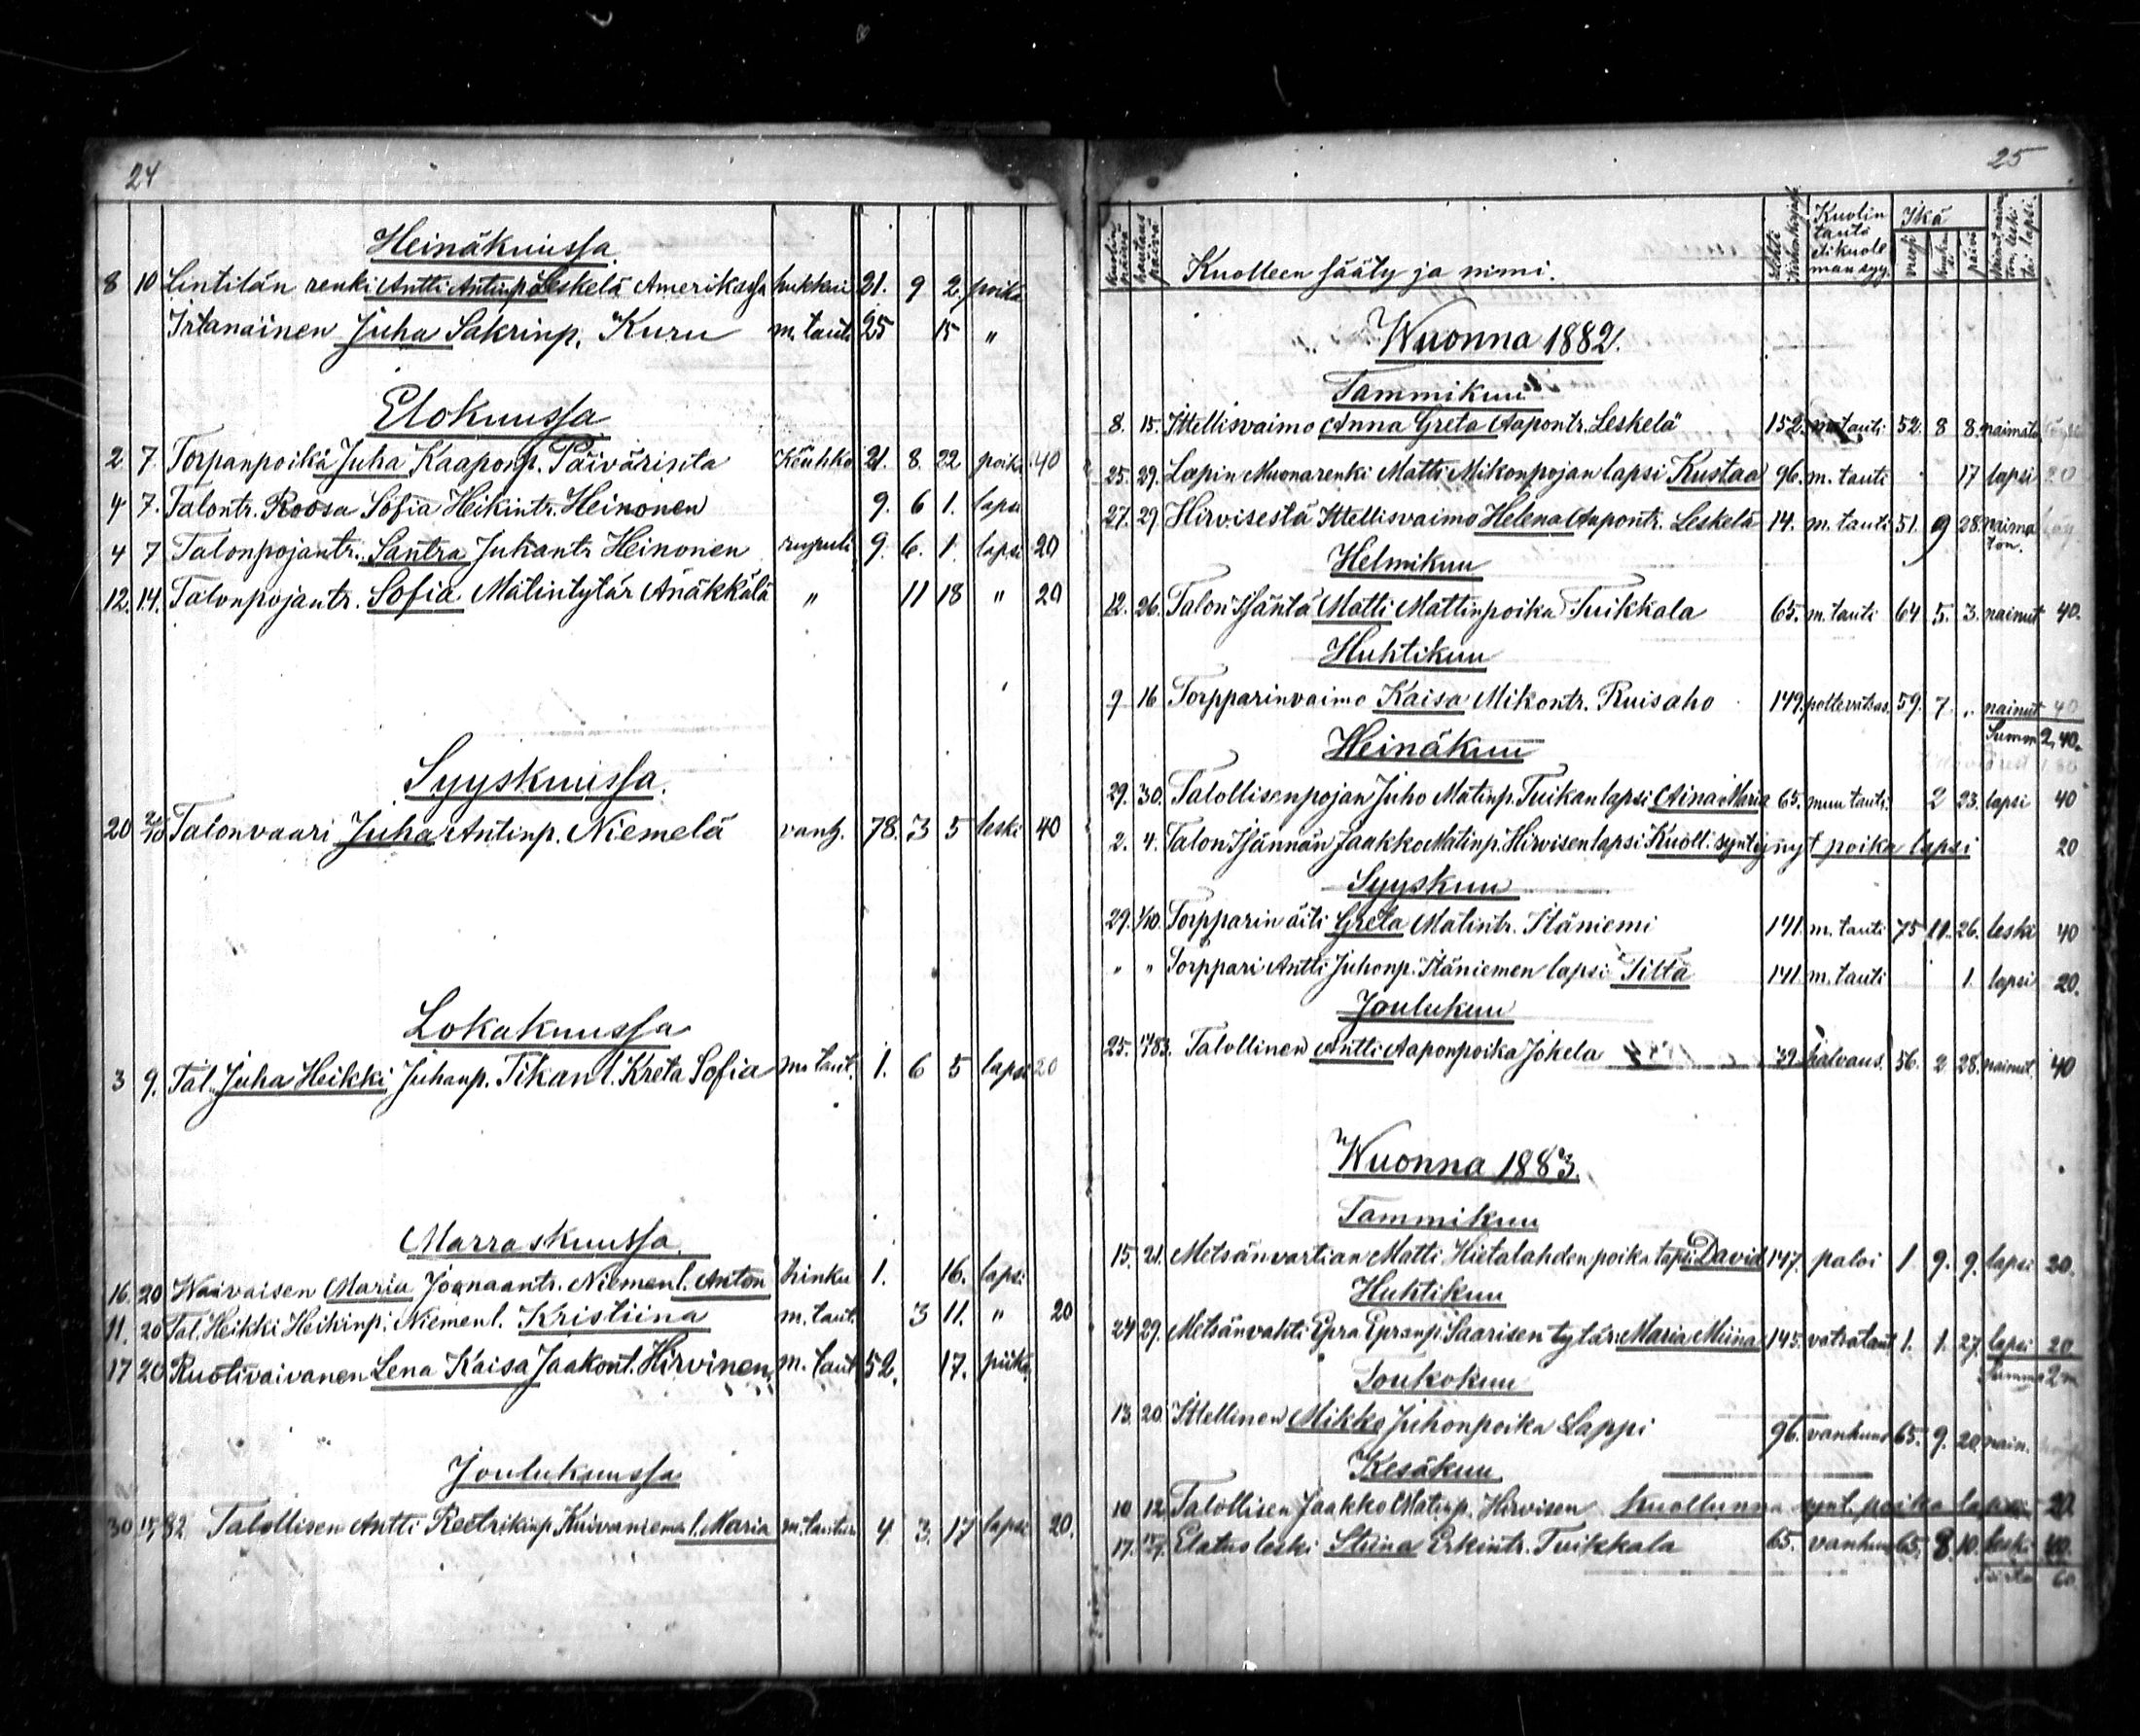 24
Heinäkuussa
8 10 Lintilän renki Antti Antinp. Leskelä Amerikassa hukkui 21. 9 2. poika
Irtanainen Juha Sakrinp. Kuru m. tauti 25 15 "
Elokuussa
2 7. Torpanpoika Juha Kaaponp. Päivärinta Keuhko 21. 8. 22 poika 40
4 7. Talontr. Roosa Sofia Heikintr. Heinonen 9. 6 1. lapsi
4 7 Talonpojantr. Santra Juhantr. Heinonen rupuli 9. 6. 1. lapsi 20
12. 14. Talonpojantr. Sofia Matintytär Änäkkälä " 11 18 " 20
Syyskuussa.
20 Talonvaari Juha Antinp. Niemelä vanh. 78. 3 5 leski 40
Lokakuussa
3 9. Tal. Juha Heikki Juhanp. Tikan l. Kreta Sofia m. taut. 1. 6 5 lapsi 20
Marraskuussa.
16. 20 Waivaisen Maria Joonaantr. Niemen l. Anton hinku 1. 16. lapsi
11. 20 Tal. Heikki Heikinp. Niemen l. Kristiina m. taut. 3 11. " 20
17 20 Ruotivaivanen Lena Kaisa Jaakont. Hirvinen, m. taut 52. 17. piika
Joulukuussa
30 82 Talollisen Antti Reetrikinp. Kuivaniemen l. Maria m. tautiin 4 3. 17 lapsi 20.
25
Kuolin päivä hautaus päivä Kuolleen sääty ja nimi. Kuolin tauti eli kuoleman syy. Ikä
Wuonna 1882.
Tammikuu
8. 15. Ittellisvaimo Anna Greta Aapontr. Leskelä 152. m. tauti 52. 8 8. naimato
25. 29. Lapin Muonarenki Matti Mikonpojan lapsi Kustaa 96. m. tauti 17 lapsi 20
27. 29. Hirvisestä Ittellisvaimo Helena Aapontr. Leskelä 14. m. tauti 51. 9 28. naimaton.
Helmikuu
12. 26. Talon Isäntä Matti Mattinpoika Tuikkala 65. m. tauti 64 5. 3. nainut 40.
Huhtikuu
9 16 Torpparinvaimo Kaisa Mikontr. Ruisaho 149. polttevatsas. 59. 7 " nainut 40
Summ 2,40.
Heinäkuu
29. 30. Talollisenpojan Juho Matinp. Tuikan lapsi Aina Maria 65. muu tauti. 2 23. lapsi 40
2. 4. Talon Isännän Jaakko Matinp. Hirvisen lapsi Kuoll. syntynyt poika lapsi 20
Syyskuu
29. 1/10. Torpparin äiti Greta Matintr. Itäniemi 141. m. tauti 75 11. 26. leski 40
" " Torppari Antti Juhonp. Itäniemen lapsi Tilta 141 m. tauti 1. lapsi 20.
Joulukuu
25. Talollinen Antti Aaponpoika Jokela 39 halvaus. 56. 2 28. nainut. 40
Wuonna 1883.
Tammikuu
15. 21. Metsänvartian Matti Hietalahden poika lapsi David 147. paloi 1. 9. 9. lapsi 20.
Huhtikuu
24 29. Metsänvahti Epra Epranp. Saarisen tytär Maria Miina 145. vatsataut 1. 1. 27. lapsi 20
Summa 2 m
Toukokuu
13. 20. Ittellinen Mikko Juhonpoika Lappi 96. vanhuus 65. 9. 20. nain.
Kesäkuu
10 12. Talollisen Jaakko Matinp. Hirvisen kuollunna synt. poika lapsi 20.
17. Elatusleski Stiina Erkintr. Tuikkala 65. vanhuus 65. 8. 10. leski 40.
60.